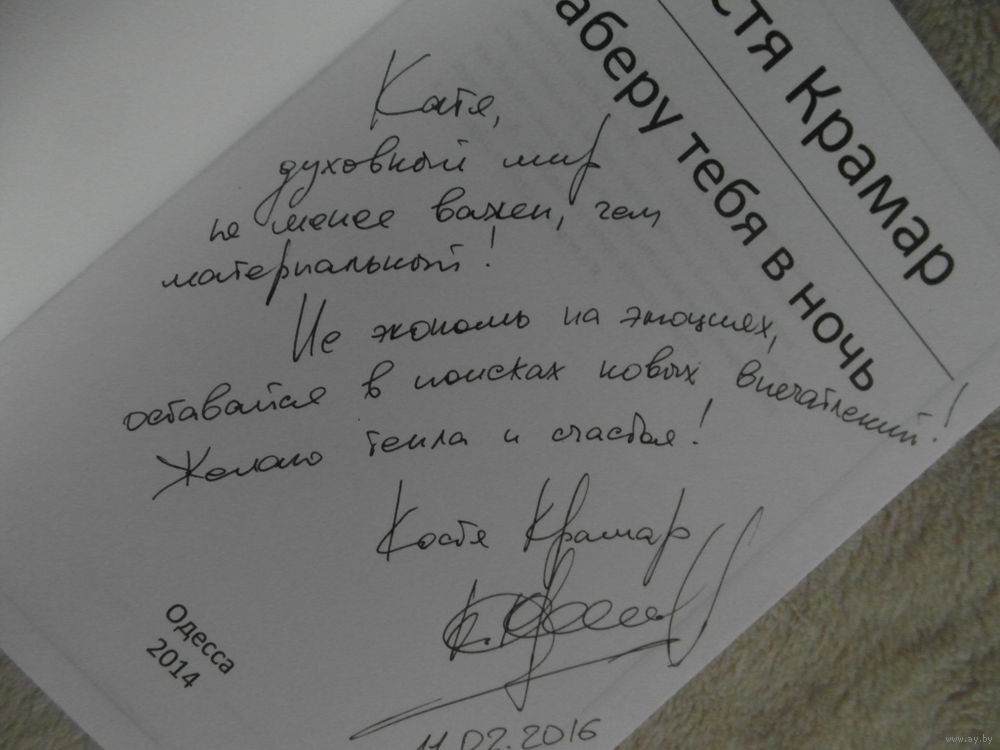 стя Крамар
аберу тебя в ночь
Катя,
духовный мир
не менее важен, чем
материальный!
Не экономь на эмоциях,
оставайся в поисках новых впечатлений!
Желаю тепла и счастья!
Костя Крамар
11.02.2016
Одесса
2014
www.ay.by